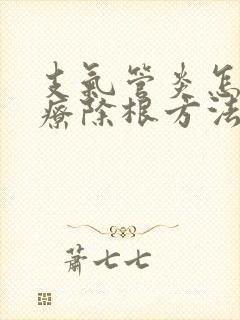 支氣管炎怎
療除根方法
蕭七七